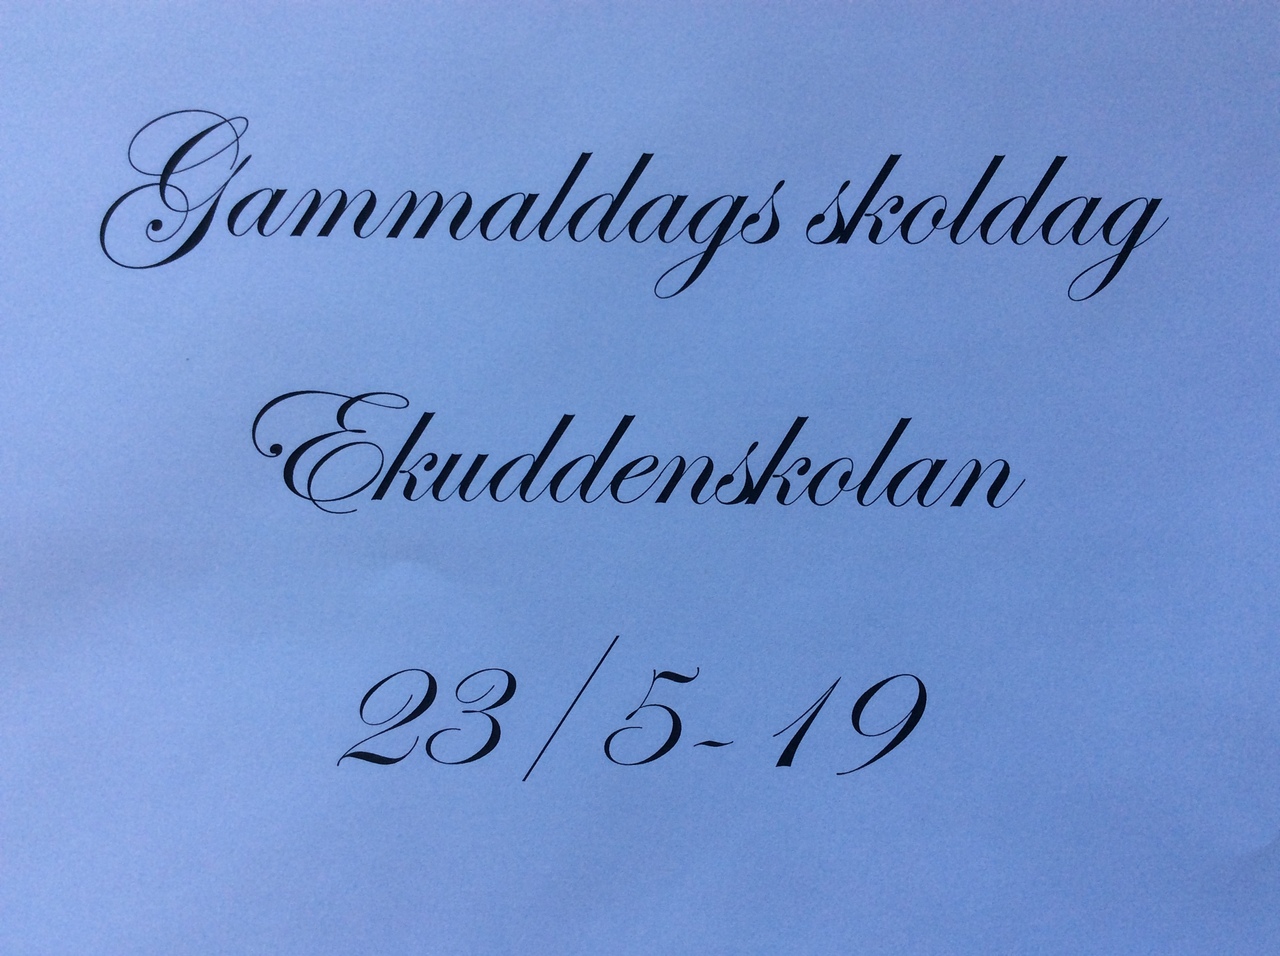 Gammaldags skoldag
Ekuddenskolan
23/5-19